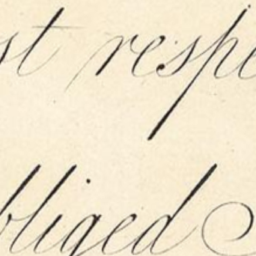 st respe
bliged S